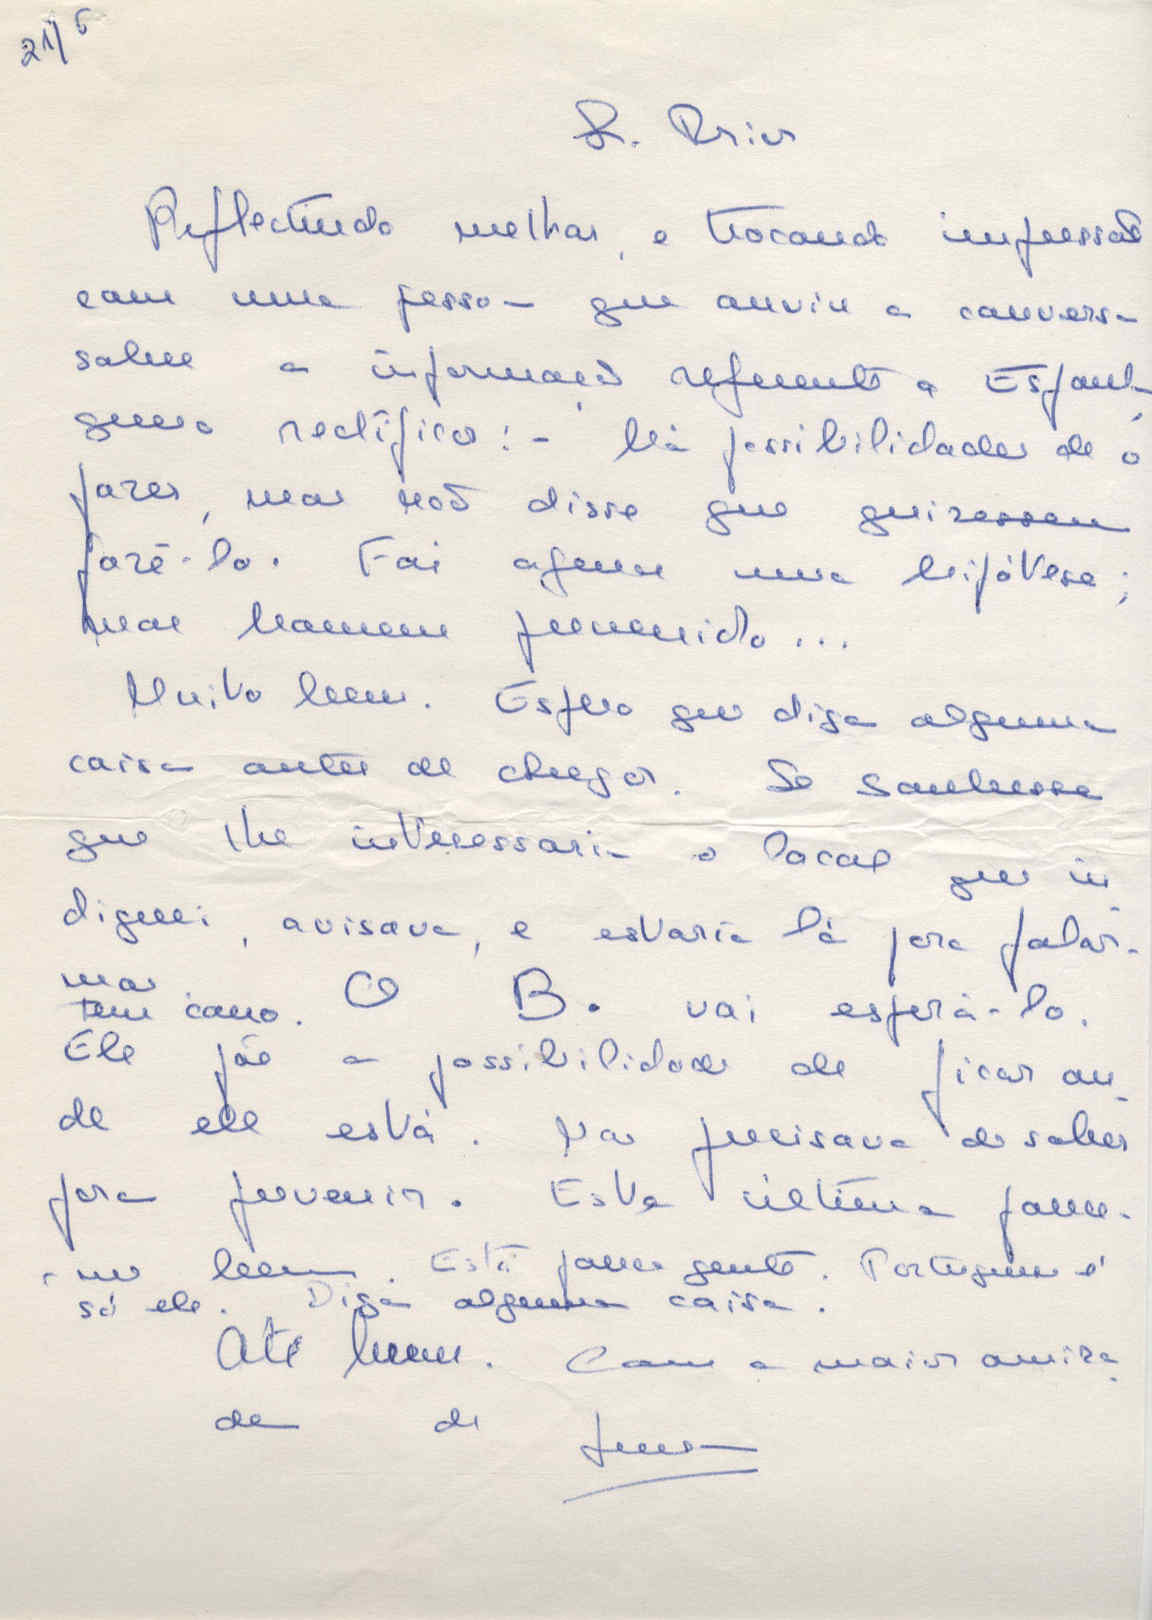 21/5
Sr.
Reflectindo melhor, e trocando impressão
com uma pessoa que ouviu a conversa
sobre a informação referente a Espanha,
quero rectificar: - Há possibilidades de o
fazer, mas não disse que quizessem
fazê-lo. Foi apenas uma hipótese;
mas homem prevenido...
Muito bem. Espero que diga alguma
coisa antes de chegar. Se soubesse
que lhe interessaria o local que in-
diquei, avisava, e estaria lá para falar-
mos.
tem como. O B. vai esperá-lo.
Ele põe a possibilidade de ficar on-
de ele está. Mas precisava de saber
para prevenir. Esta última parece-
-me bem. Está pouca gente. Português é
só ele. Diga alguma coisa.
Até breve. Com a maior amiza-
de de